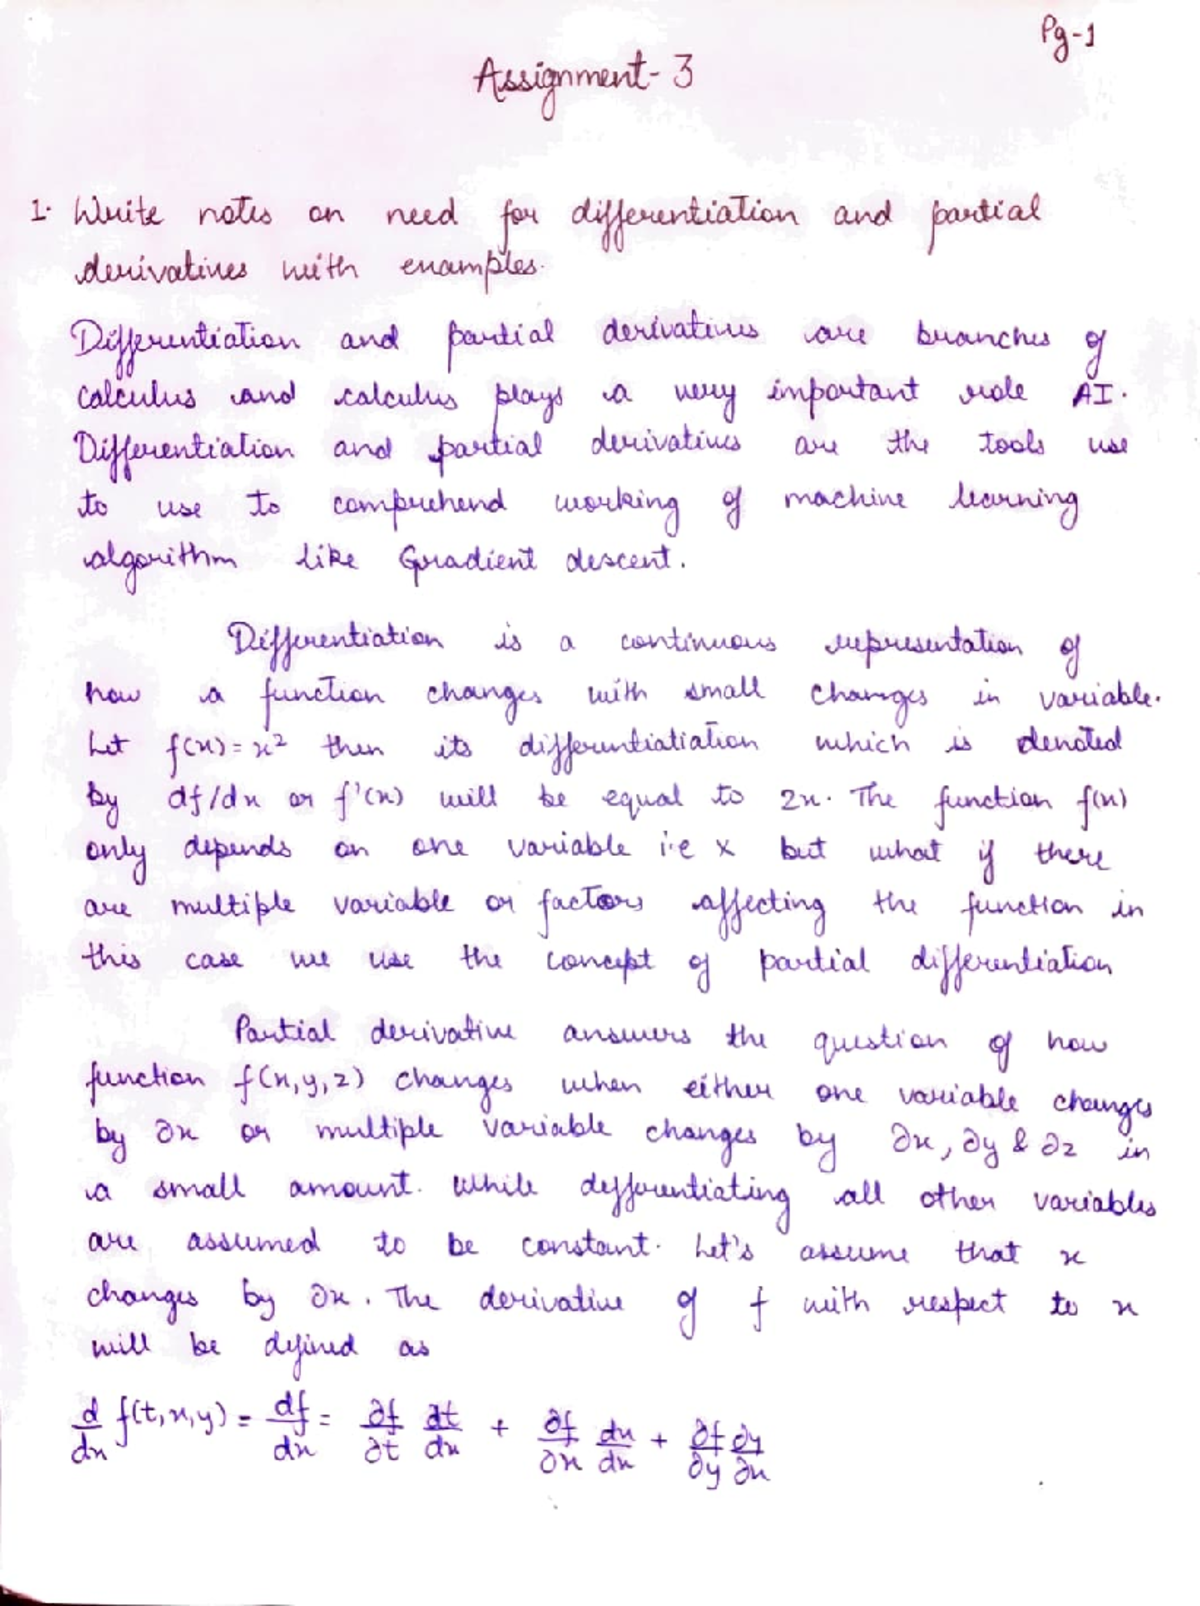 Pg-1
Assignment-3
1. Write notes on need for differentiation and partial
derivatives with examples.
Differentiation and partial derivatives are branches of
calculus and calculus plays a very important role AI.
Differentiation and partial derivatives are the tools use
to use to comprehend working of machine learning
algorithm like Gradient descent.
Differentiation is a continuous representation of
how a function changes with small changes in variable.
Let f(x)=x² then its differentiatiation which is denoted
by df/dx or f'(x) will be equal to 2x. The function f(x)
only depends on one variable i.e x but what if there
are multiple variable or factors affecting the function in
this case we use the concept of partial differentiation
Partial derivative answers the question of how
function f(x,y,z) changes when either one variable changes
by ∂x or multiple variable changes by ∂x, ∂y & ∂z in
a small amount. While deffrentiating all other variables
are assumed to be constant. Let's assume that x
changes by ∂x. The derivative of f with respect to x
will be defined as
d/dx f(t,x,y) = df/dx = ∂f/∂t ∂t/dx + ∂f/∂x dx/dx + ∂f/∂y ∂y/∂x